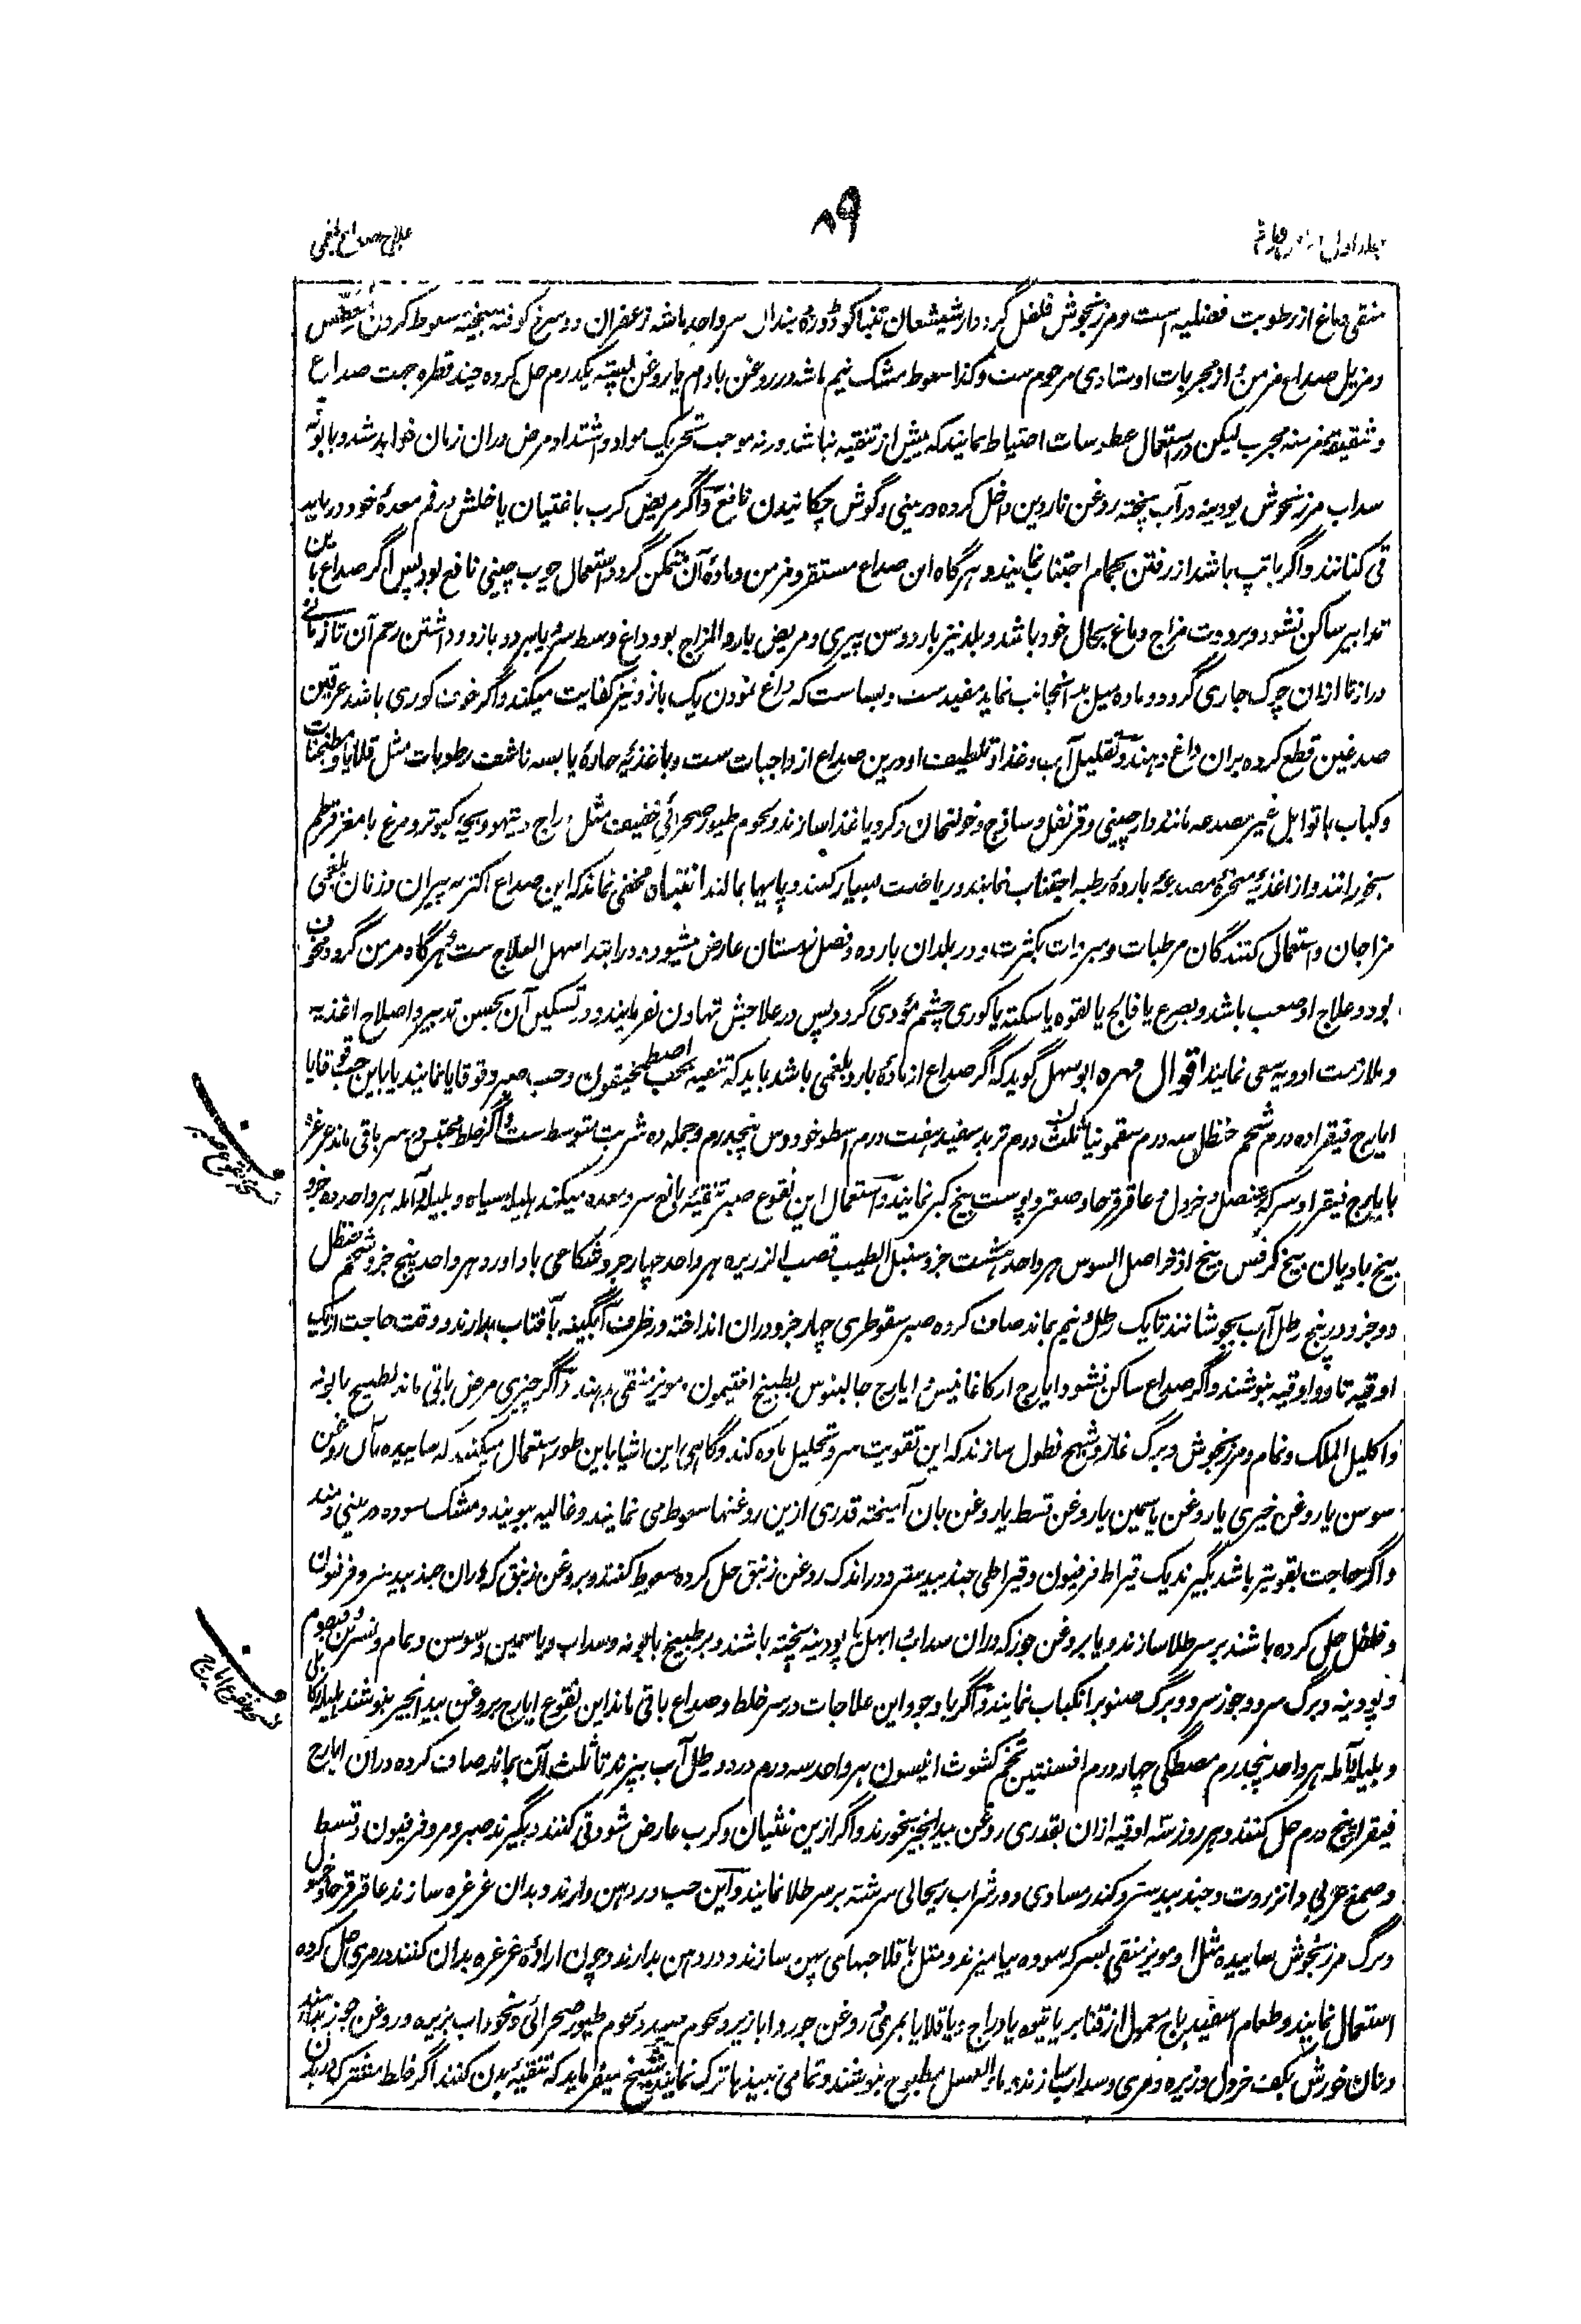 ۸۹
علاج صداع بلغمی
جلد اول
منقی دماغ از رطوبت فضلیه است و مرزنجوش فلفل گرد دارشیشعان تنباکو ڈوڈه بندال هر واحد ماشه زعفران دو سرخ کوفته بیخته سعوط کردن معطس
و مزیل صداع مزمن از مجربات اوستادی مرحوم ست و کذا سعوط مشک نیم ماشه در روغن بادام یا روغن پسته یکدرم حل کرده چند قطره جهت صداع
و شقیقه مزمنه مجرب لیکن در استعمال عطوسات احتیاط نمایند که پیش از تنقیه نباشد ورنه موجب تحریک مواد و اشتداد مرض دران زمان خواهد شد و بابونه
سداب مرزنجوش پودینه در آب پخته روغن ناردین داخل کرده در بینی و گوش چکانیدن نافع و اگر مریض کرب با غثیان یا خلش در فم معدهٔ خود دریابد
قی کنانند و اگر با تپ باشد از رفتن بحمام اجتناب نمایند و هرگاه این صداع مستقر و مزمن و مادهٔ آن متمکن گردد استعمال چوب چینی نافع بود پس اگر صداع باین
تدابیر ساکن نشود و برودت مزاج دماغ بحال خود باشد و بلد نیز بارد و سن پیری و مریض بارد المزاج بود داغ وسط سر یا بر دو بازو و داشتن زخم آن تا زمانے
دراز تا ازان چرک جاری گردد و ماده میل بدانجانب نماید مفید ست و بساست که داغ نمودن یک بازو نیز کفایت میکند و اگر خوف کوری باشد عرقین
صدغین قطع کرده بران داغ دهند و تقلیل آب و غذا و تلطیف او درین صداع از واجبات ست و باغذیهٔ حادهٔ یابسه ناشف رطوبات مثل قلایا و مطنجنات
و کباب با توابل غیر مصدعه مانند دارچینی و قرنفل و ساذج و خولنجان و کرویا غذا سازند و لحوم طیور صحرائی خفیف مثل دراج و تیهو و بچهٔ کبوتر و مرغ با مغز قرطم
بخورانند و از اغذیهٔ مبخرهٔ مصدعهٔ باردهٔ رطبه اجتناب نمایند و ریاضت بسیار کنند و پایها بمالند انتباه مخفی نماند که این صداع اکثر به پیران و زنان بلغمی
مزاجان و استعمال کنندگان مرطبات و مبردات بکثرت و در بلدان بارده و فصل زمستان عارض میشود و در ابتدا سهل العلاج ست و هرگاه مزمن گردد مخوف
بود و علاج او صعب باشد و بصرع یا فالج یا لقوه یا سکته یا کوری چشم مؤدی گردد پس در علاجش تهاون نفرمایند و در تسکین آن بحسن تدبیر و اصلاح اغذیه
و ملازمت ادویه سعی نمایند اقوال مهره ابو سهل گوید که اگر صداع از مادهٔ بارد بلغمی باشد باید که تنقیه بحب اصطمخیقون و حب صبر و قوقایا نمایند یا باین حب قوقایا
ایارج فیقرا ده درم شحم حنظل سه درم سقمونیا ثلث درم تربد سفید هفت درم اسطوخودوس پنجدرم و جمله ده شربت متوسط ست و اگر خلط محتبس در سر باقی ماند غرغره
بایارج فیقرا و سرکه عنصل و خردل و عاقرقرحا و صعتر و پوست بیخ کبر نمایند و استعمال این نقوع صبر تنقیهٔ بالغ سر و معده میکند هلیله سیاه و بلیله و آمله هر واحد ده جزو
بیخ بادیان بیخ کرفس بیخ اذخر اصل السوس هر واحد هشت جزو سنبل الطیب قصب الزریره هر واحد چهار جزو شکاعی باداورد هر واحد پنج جزو شحم حنظل
دو جزو در پنج رطل آب بجوشانند تا یک رطل و نیم بماند صاف کرده صبر سقوطری چهار جزو دران انداخته در ظرف آبگینه بآفتاب بدارند و وقت حاجت از یک
اوقیه تا دو اوقیه بنوشند و اگر صداع ساکن نشود ایارج ارکاغانیس و ایارج جالینوس بطبیخ افتیمون و مویز منقی بدهند و اگر چیزی مرض باقی ماند بطبیخ بابونه
و اکلیل الملک و نمام و مرزنجوش و برگ غار و شیح نطول سازند که این تقویت سر و تحلیل ماده کند و گاهی این اشیا باین طور استعمال میکنند که ساییده بآن روغن
سوسن یا روغن خیری یا روغن یاسمین یا روغن قسط یا روغن بان آمیخته قدری ازین روغنها سعوط می نمایند و غالیه ببویند و مشک سوده در بینی دمند
و اگر حاجت بقویتر باشد بگیرند یک قیراط فرفیون و قیراطی جندبیدستر و در اندک روغن زنبق حل کرده سعوط کنند و بروغن زنبق که دران جندبیدستر و فرفیون
و فلفل حل کرده باشند بر سر طلا سازند و یا بروغن جوز که دران سداب و ابهل یا پودینه پخته باشند و بر طبیخ بابونه و سداب و یاسمین و سوسن و نمام و نسرین و قیصوم
و پودینه و برگ سرو و جوز سرو و برگ صنوبر انکباب نمایند و اگر با وجود این علاجات در سر خلط و صداع باقی ماند این نقوع ایارج بروغن بیدانجیر بنوشند هلیله کابلی
و بلیله و آمله هر واحد پنجدرم مصطگی چهار درم افسنتین تخم کشوث انیسون هر واحد سه درم در دو رطل آب بپزند تا ثلث آن بماند صاف کرده دران ایارج
فیقرا پنج درم حل کنند و هر روز سه اوقیه ازان بقدری روغن بیدانجیر بخورند و اگر ازین غثیان و کرب عارض شود قی کنند و بگیرند صبر و مر و فرفیون و قسط
و صمغ عربی و انزروت و جندبیدستر و کندر مساوی و در شراب ریحانی سرشته بر سر طلا نمایند و این حب در دهن دارند و بدان غرغره سازند عاقرقرحا و خردل
و برگ مرزنجوش ساییده مثل او مویز منقی بسرکه سوده بیامیزند و مثل باقلا حبهای پهن سازند و در دهن بدارند و چون ارادهٔ غرغره بدان کنند در مری حل کرده
استعمال نمایند و طعام اسفیدباج معمول از قنابر یا تیهو یا دراج و یا قلایا بمری و روغن جوز و ابازیر و لحوم صید و لحوم طیور صحرائی و نخوداب بزیره و روغن جوز بدهند
و نان خورش بکف خردل و زیره و مری و سداب سازند و ماء العسل مطبوخ بنوشند و تمامی نبیذها ترک نمایند شیخ میفرماید که تنقیهٔ بدن کنند اگر خلط مشترک در بدن
نسخه نقوع صبر
نسخه نقوع ایارج